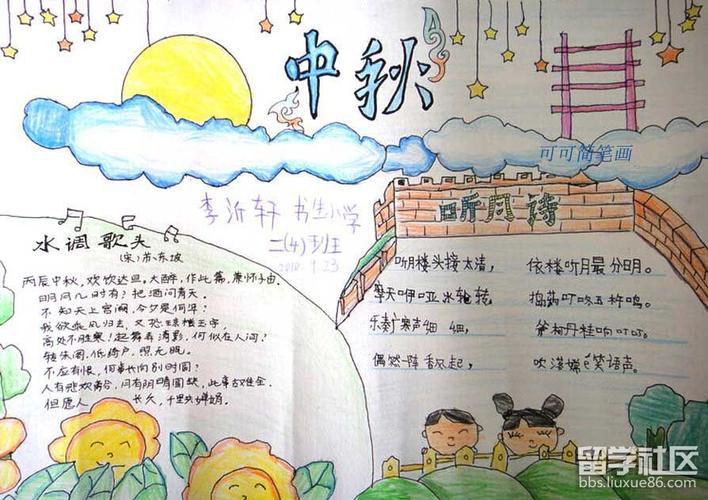 中秋
可可简笔画
李沂轩 书生小学
二(4)班
2010.9.23
水调歌头
(宋)苏东坡
丙辰中秋,欢饮达旦。大醉,作此篇,兼怀子由。
明月几时有?把酒问青天。
不知天上宫阙,今夕是何年?
我欲乘风归去,又恐琼楼玉宇,
高处不胜寒!起舞弄清影,何似在人间?
转朱阁,低绮户,照无眠。
不应有恨,何事长向别时圆?
人有悲欢离合,月有阴晴圆缺,此事古难全。
但愿人 长久,千里共婵娟。
听月诗
听月楼头接太清, 依楼听月最分明。
摩天咿哑冰轮转, 捣药叮咚玉杵鸣。
乐奏广寒声细细, 斧柯丹桂响叮叮。
偶然阵香风起, 吹落嫦笑语声。
留学社区
bbs.liuxue86.com